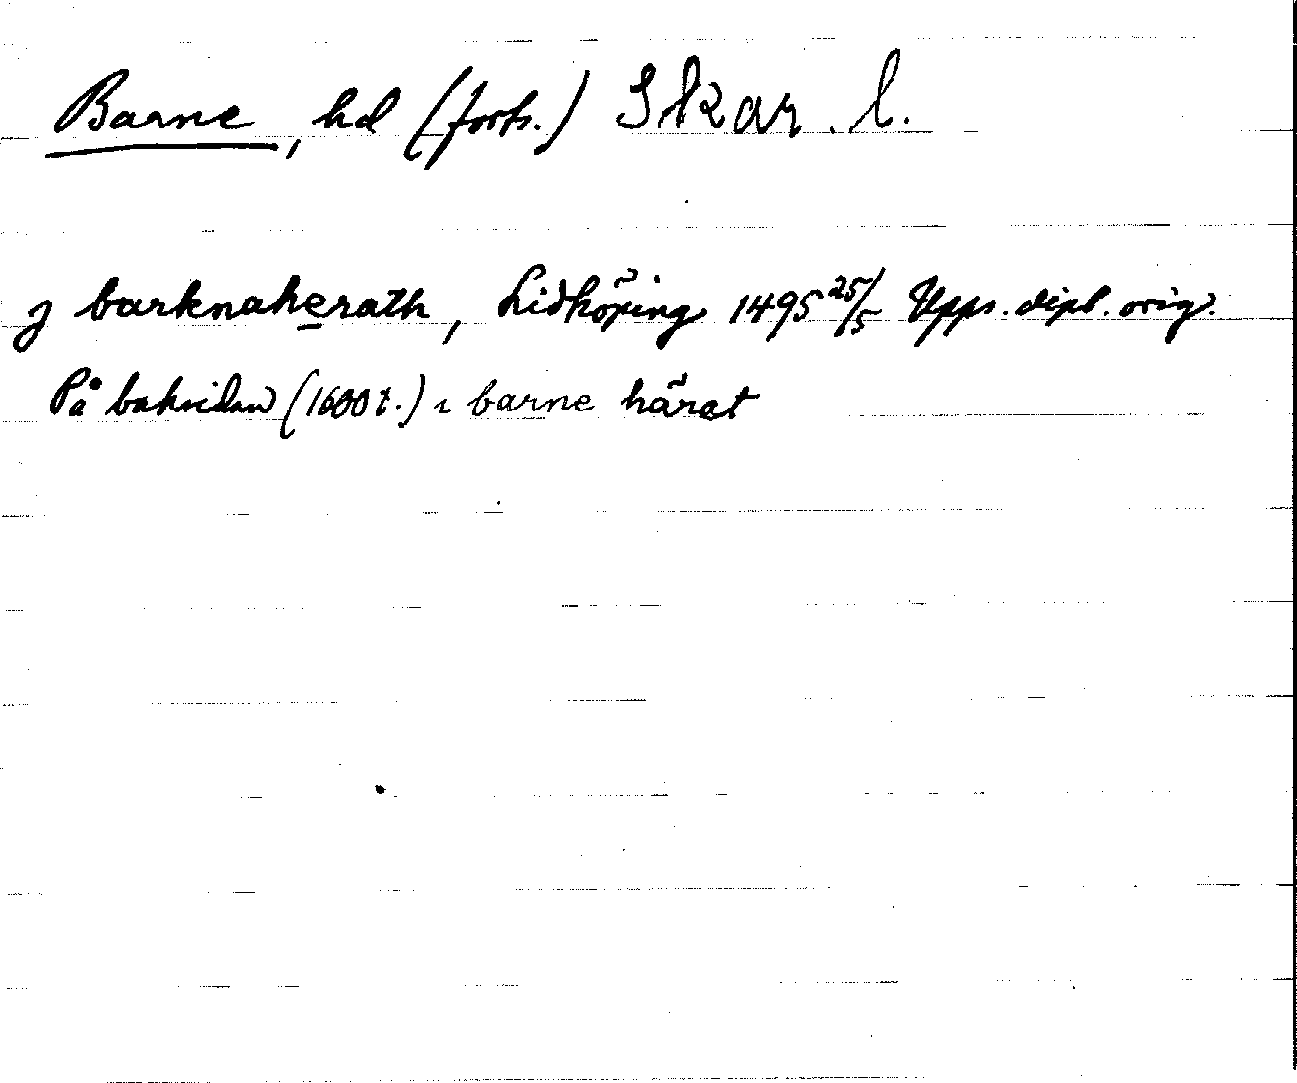 Barne, hd (forts.) Skar. l.
j barknaherath, Lidköping 1495 25/5 Upps. dipl. orig.
På baksidan (1600 t.) i barne härat